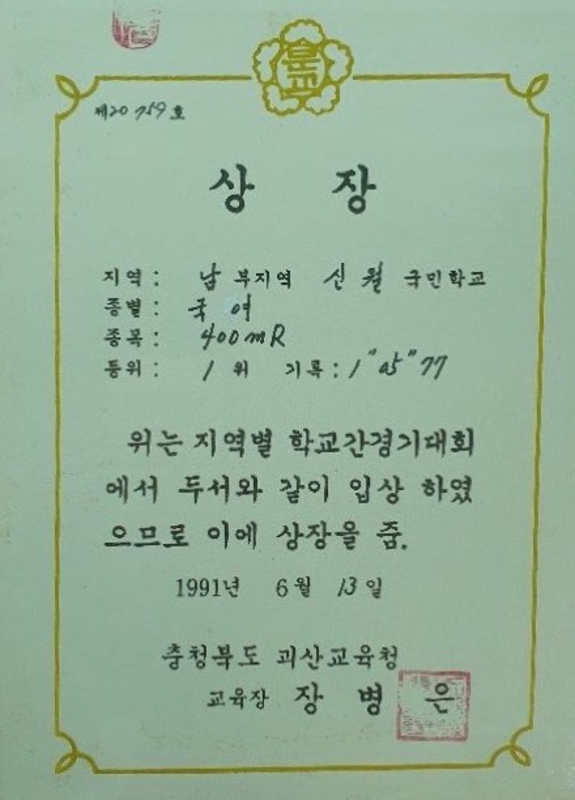 제20759호
상 장
지역: 남부지역 신월 국민학교
종별: 국 여
종목: 400mR
등위: 1 위 기록: 1"05"77
위는 지역별 학교간경기대회
에서 두서와 같이 입상 하였
으므로 이에 상장을 줌.
1991년 6월 13일
충청북도 괴산교육청
교육장 장 병 은